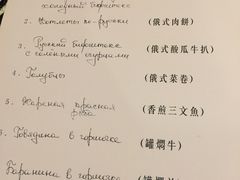 холодный бифштекс
2. Котлеты по-русски (俄式肉餅)
3. Русский бифштекс
с солеными огурцами (俄式酸瓜牛扒)
4. Голубцы (俄式菜卷)
5. Жареная красная
рыба (香煎三文魚)
Говядина в горшотке (罐燜牛
Баранина в горшотке (罐燜